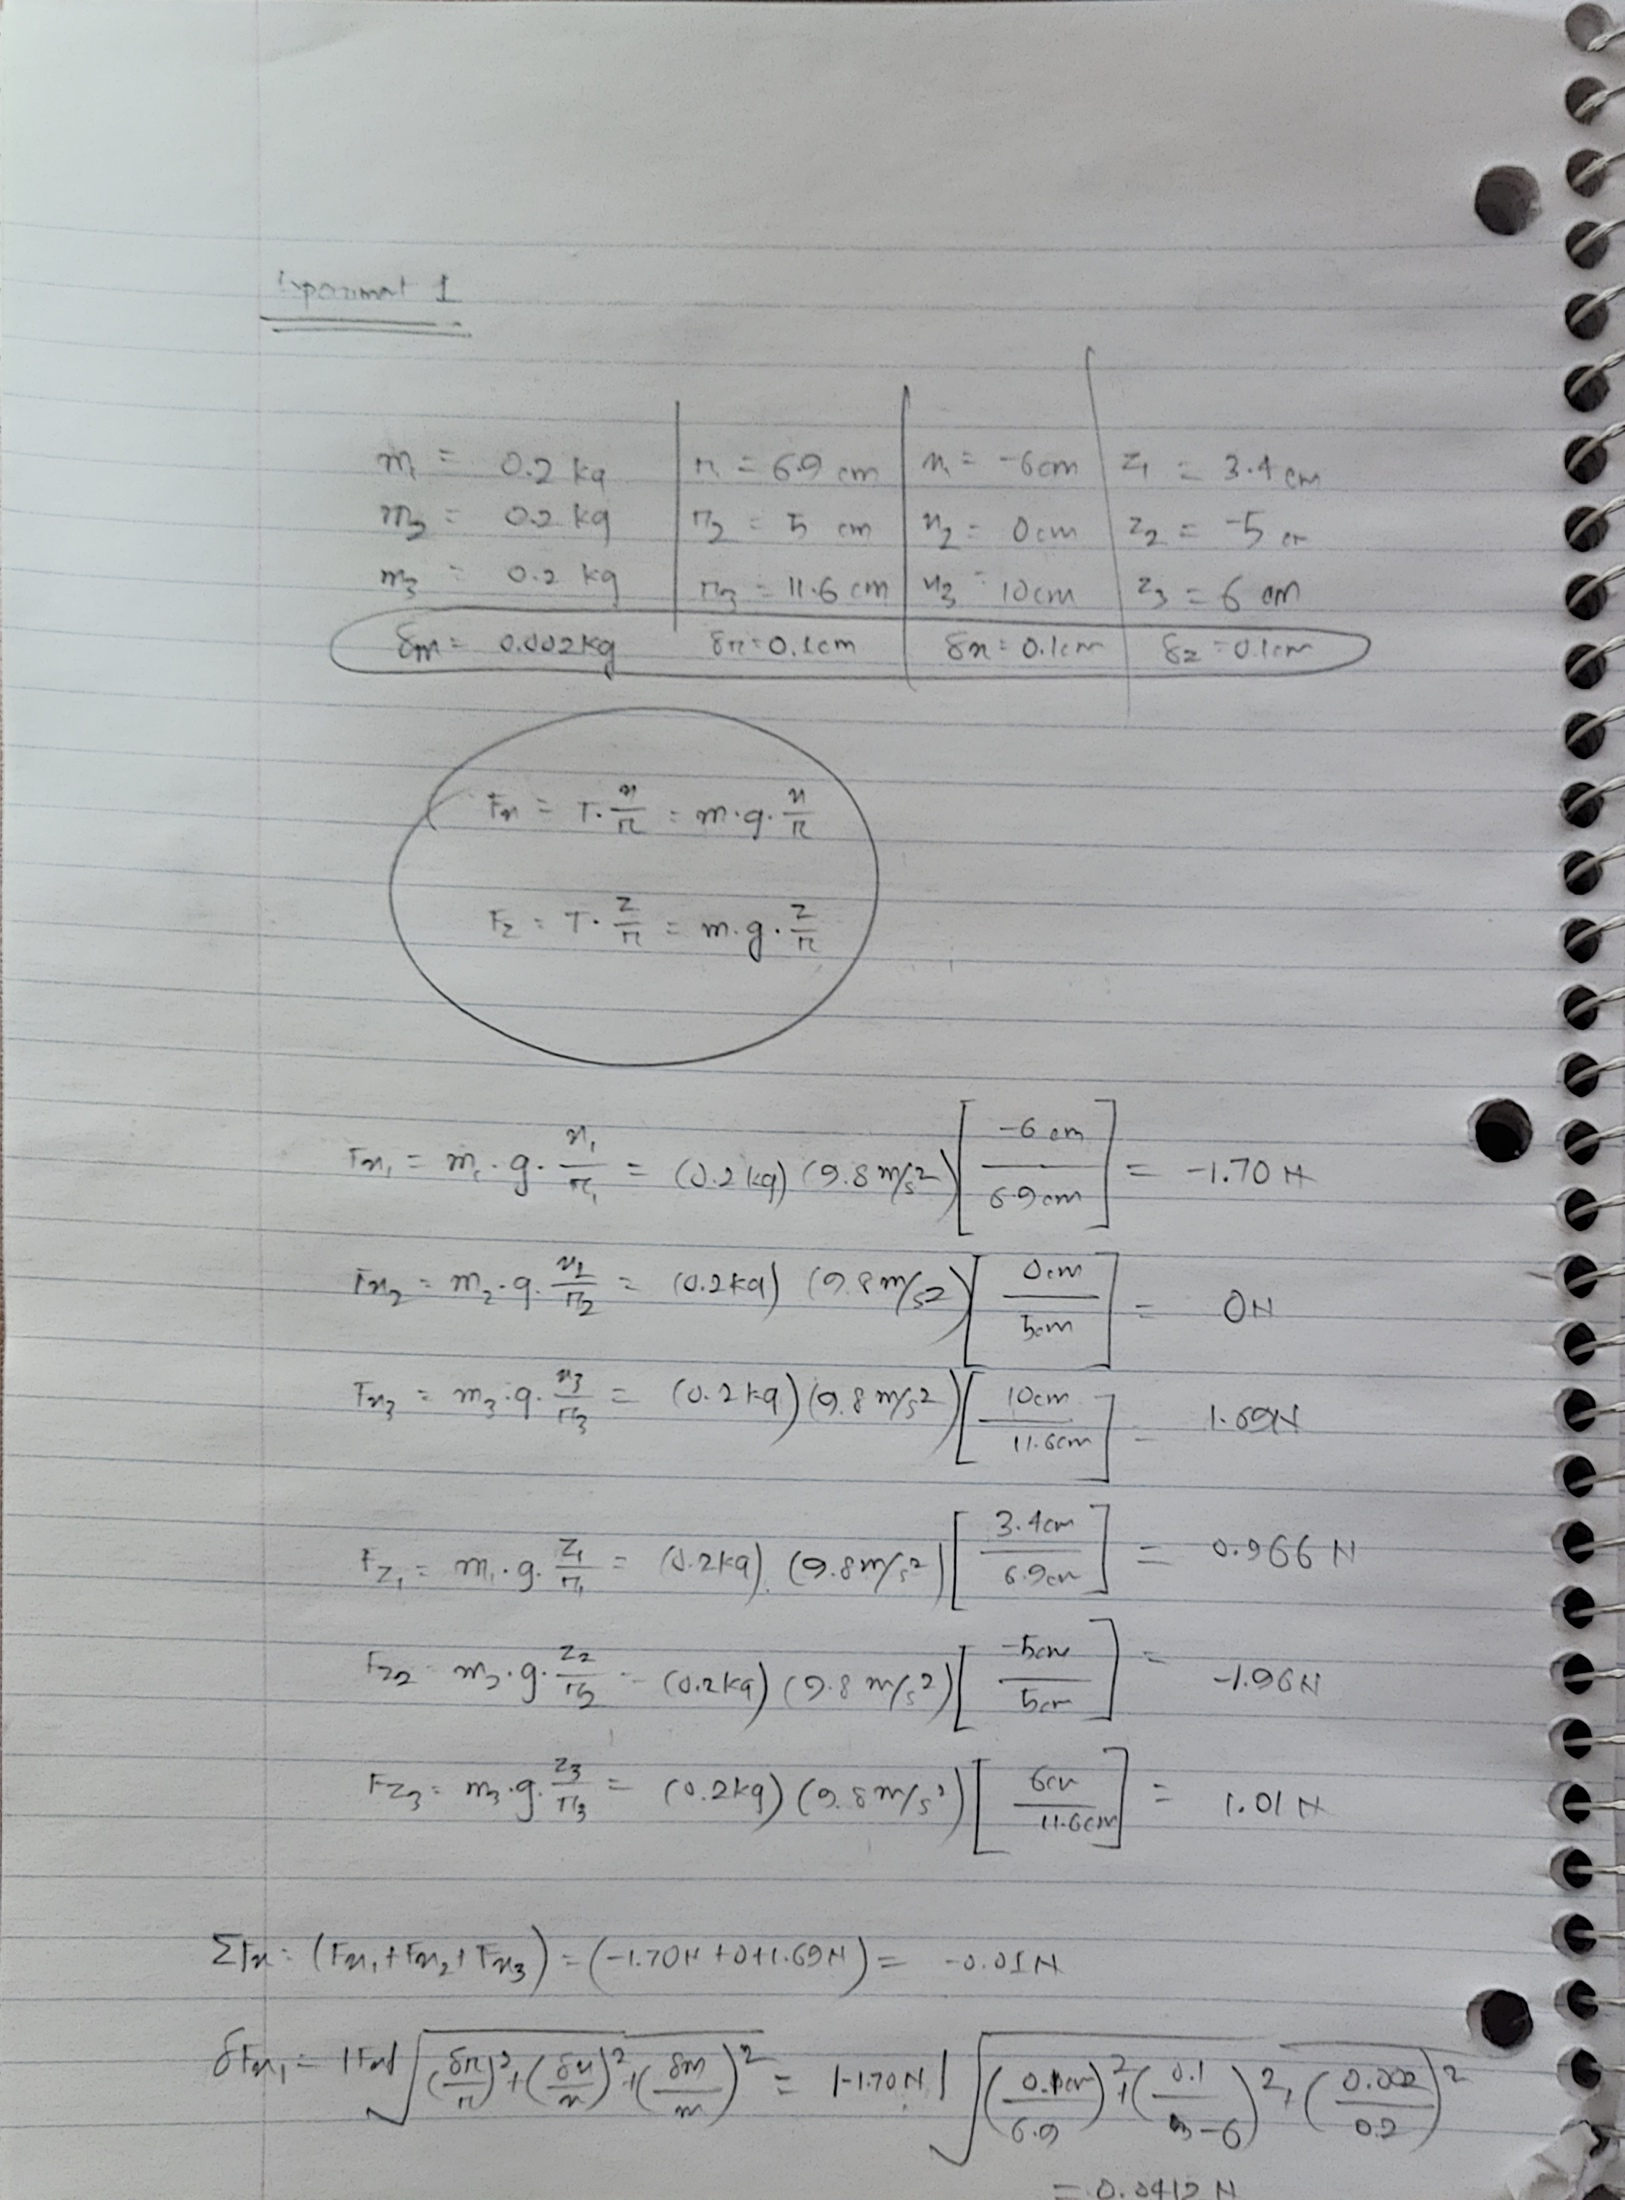 Experiment 1
m₁ = 0.2 kg | r₁ = 6.9 cm | x₁ = -6cm | z₁ = 3.4 cm
m₂ = 0.2 kg | r₂ = 5 cm | x₂ = 0cm | z₂ = -5 cm
m₃ = 0.2 kg | r₃ = 11.6 cm | x₃ = 10cm | z₃ = 6 cm
δm = 0.002kg δr = 0.1cm δx = 0.1cm δz = 0.1cm
Fx = T · x/r = m·g· x/r
Fz = T · z/r = m·g· z/r
Fx₁ = m₁ · g · x₁/r₁ = (0.2 kg) (9.8 m/s²) [-6 cm / 6.9cm] = -1.70 N
Fx₂ = m₂ · g · x₂/r₂ = (0.2kg) (9.8 m/s²) [0cm / 5cm] = 0N
Fx₃ = m₃ · g · x₃/r₃ = (0.2 kg) (9.8 m/s²) [10cm / 11.6cm] = 1.69N
Fz₁ = m₁ · g · z₁/r₁ = (0.2kg) (9.8m/s²) [3.4cm / 6.9cm] = 0.966 N
Fz₂ = m₂ · g · z₂/r₂ = (0.2kg) (9.8 m/s²) [-5cm / 5cm] = -1.96N
Fz₃ = m₃ · g · z₃/r₃ = (0.2kg) (9.8 m/s²) [6cm / 11.6cm] = 1.01 N
ΣFx = (Fx₁ + Fx₂ + Fx₃) = (-1.70N + 0 + 1.69N) = -0.01N
δFx₁ = |Fx| √((δr/r)² + (δx/x)² + (δm/m)²) = |-1.70N| √((0.1cm/6.9)² + (0.1/-6)² + (0.002/0.2)²)
= 0.0412 N